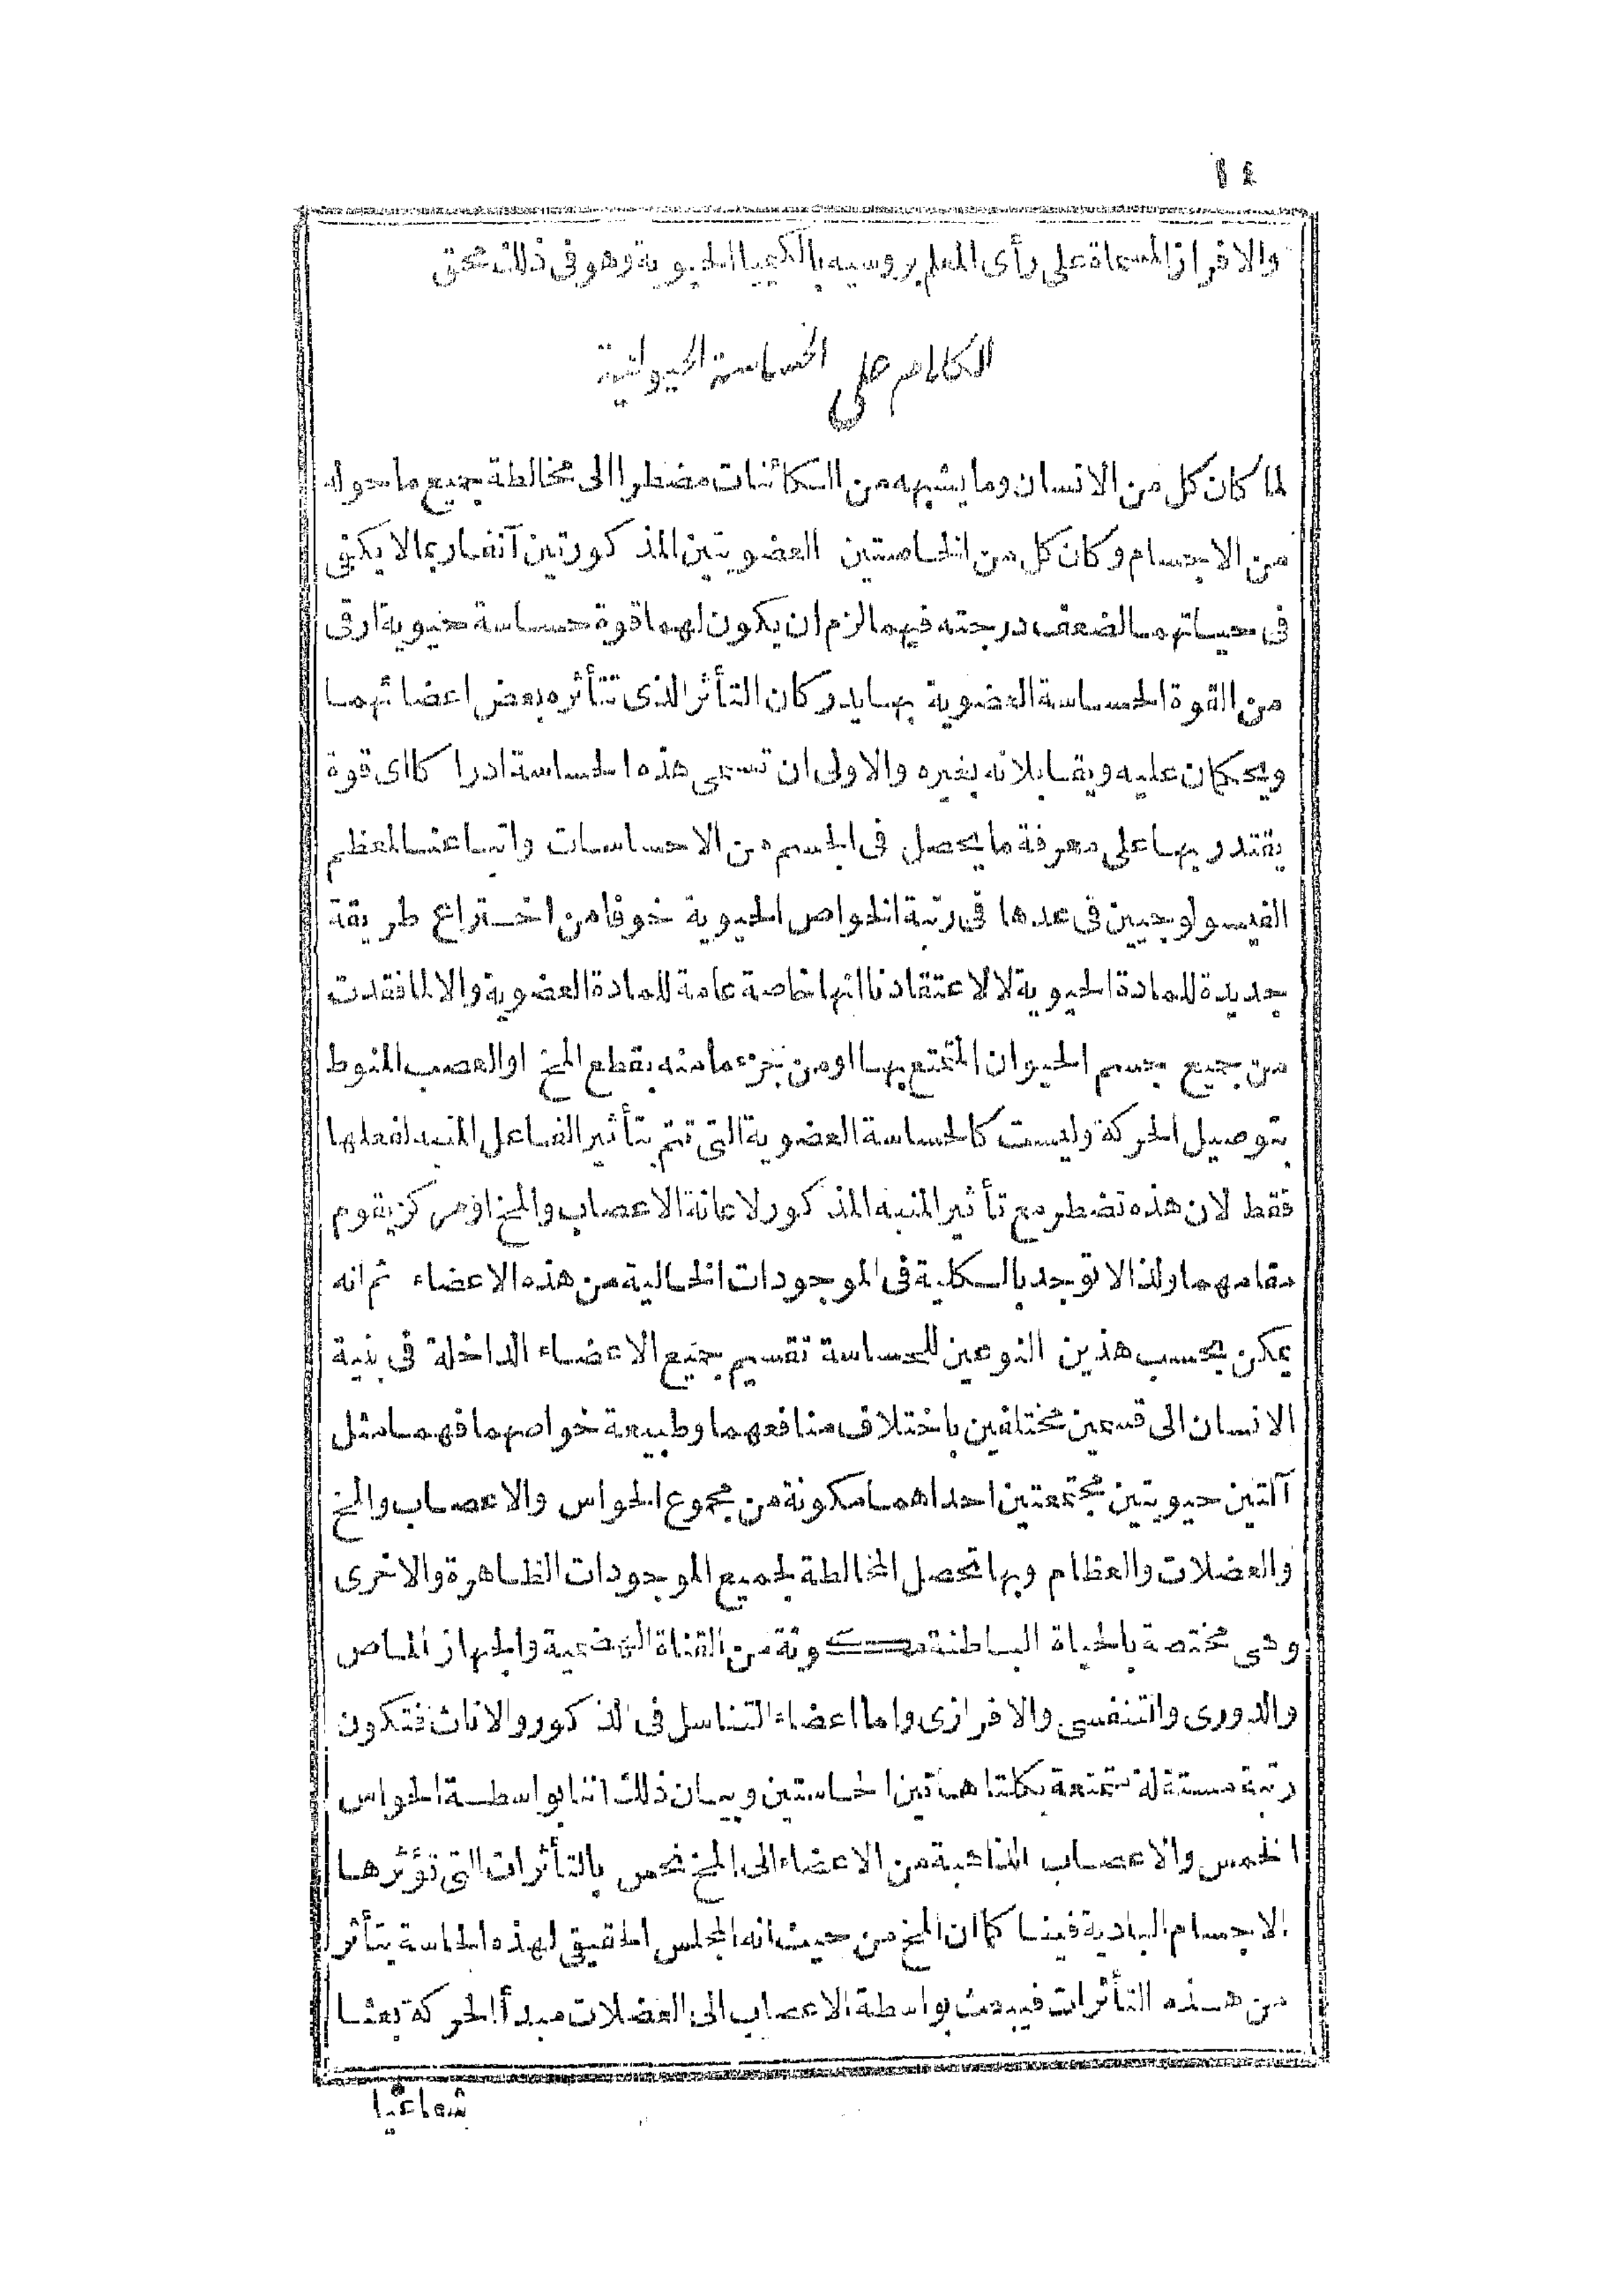 ١٤
والافراز المسماة على رأى المعلم بروسيه بالكيميا الحيوية وهو فى ذلك محق
الكلام على الحساسة الحيوانية
لما كان كل من الانسان وما يشبهه من الكائنات مضطرا الى مخالطة جميع ما حوله
من الاجسام وكان كل من الخاصتين العضويتين المذكورتين آنفا ربما لا يكفى
فى حياتهما لضعف درجته فيهما لزم ان يكون لهما قوة حساسة حيوية ارقى
من القوة الحساسة العضوية بها يدركان التأثر الذى تتأثره بعض اعضائهما
ويحكمان عليه ويقابلانه بغيره والاولى ان تسمى هذه الحساسة ادراكا اى قوة
يقتدر بها على معرفة ما يحصل فى الجسم من الاحساسات واتباعنا لمعظم
الفيسولوجيين فى عدها فى رتبة الخواص الحيوية خوفا من اختراع طريقة
جديدة للمادة الحيوية لا لاعتقادنا انها خاصة عامة للمادة العضوية والا لما فقدت
من جميع جسم الحيوان المتمتع بها او من جزء ما منه بقطع المخ او العصب المنوط
بتوصيل الحركة وليست كالحساسة العضوية التى تتم بتأثير الفاعل المنبه لفعلها
فقط لان هذه تضطر مع تأثير المنبه المذكور لاعانة الاعصاب والمخ او مركز يقوم
مقامهما ولذا لا توجد بالكلية فى الموجودات الخالية من هذه الاعضاء ثم انه
يمكن بحسب هذين النوعين للحساسة تقسيم جميع الاعضاء الداخلة فى بنية
الانسان الى قسمين مختلفين باختلاف منافعهما وطبيعة خواصهما فهما مثل
آلتين حيويتين مجتمعتين احداهما مكونة من مجموع الحواس والاعصاب والمخ
والعضلات والعظام وبها تحصل المخالطة لجميع الموجودات الظاهرة والاخرى
وهى مختصة بالحياة الباطنة مكونة من القناة الهضمية والجهاز الماص
والدورى والتنفسى والافرازى واما اعضاء التناسل فى الذكور والاناث فتكون
رتبة مستقلة متمتعة بكلتا هاتين الحاستين وبيان ذلك اننا بواسطة الحواس
الخمس والاعصاب الذاهبة من الاعضاء الى المخ نحس بالتأثرات التى تؤثرها
الاجسام البادية فينا كما ان المخ من حيث انه المجلس الحقيقى لهذه الحاسة يتأثر
من هذه التأثرات فيبعث بواسطة الاعصاب الى العضلات مبدأ الحركة بعثا
شعاعيا